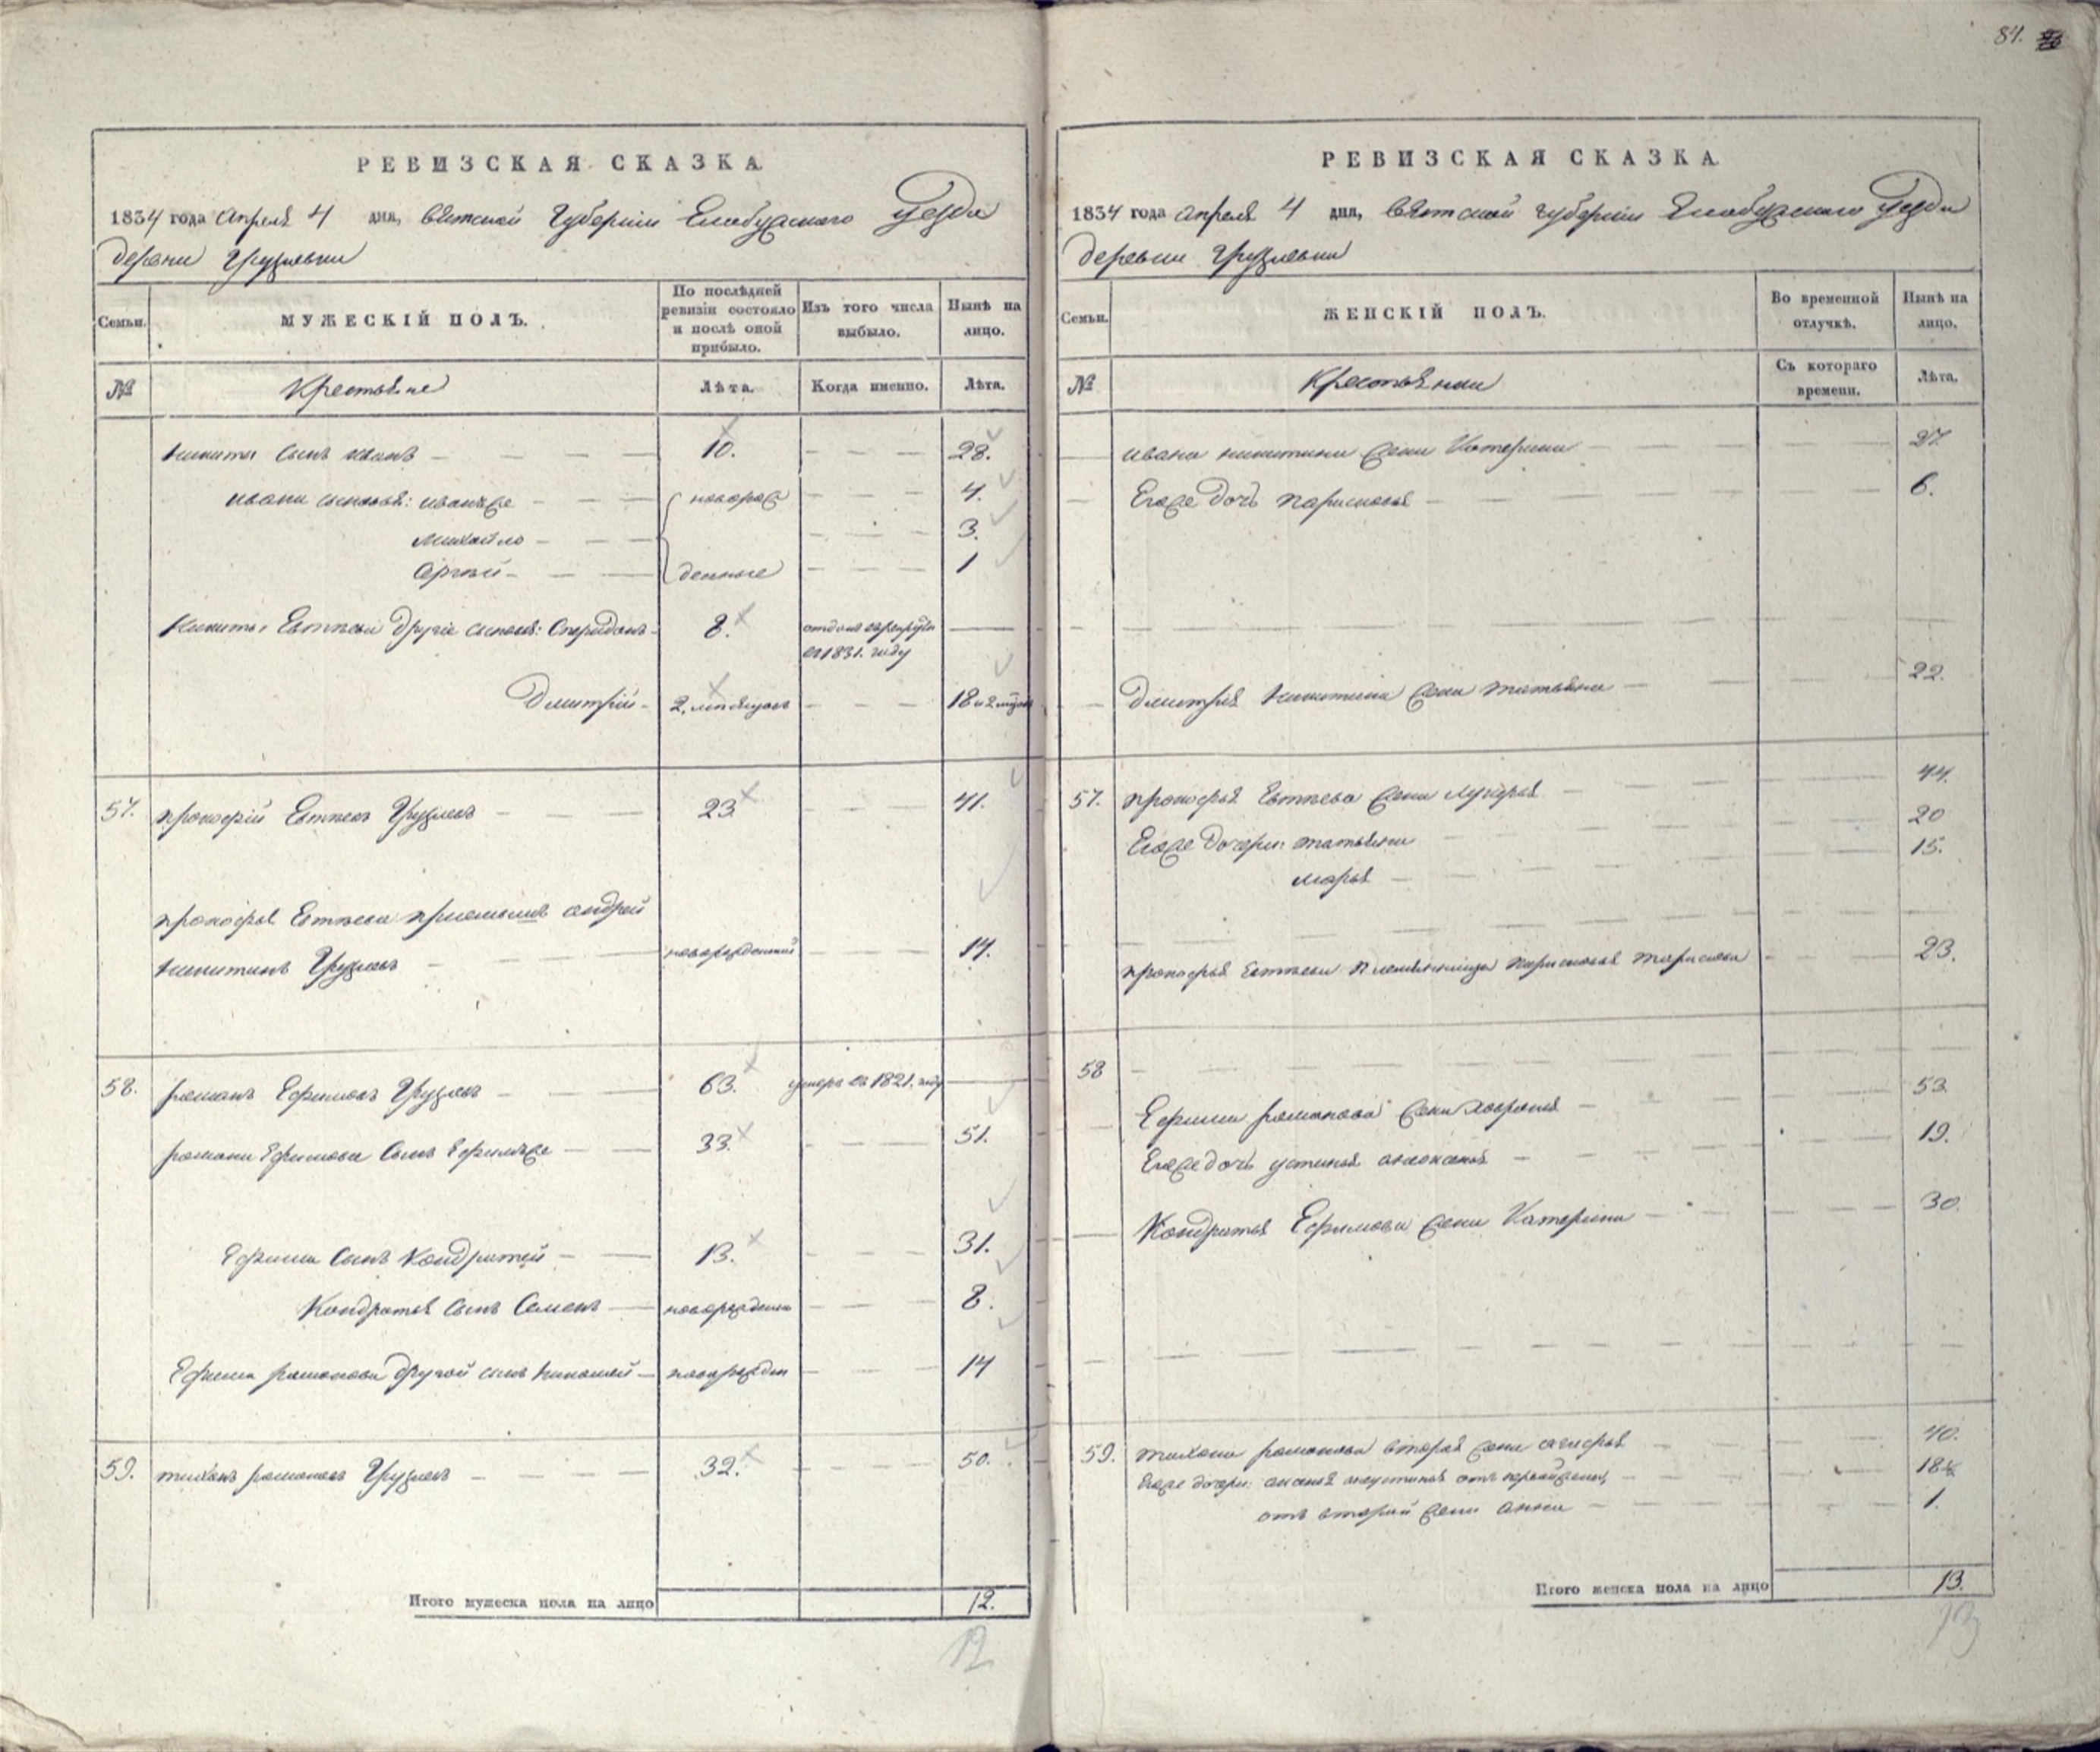 84.
РЕВИЗСКАЯ СКАЗКА.
1834 года Апреля 4 дня, вятской Губернии Елабужского Уезда
деревни
Семьи.
МУЖЕСКІЙ ПОЛЪ.
По послѣдней ревизіи состояло и послѣ оной прибыло.
Изъ того числа выбыло.
Нынѣ на лицо.
№
Крестьяне
Лѣта.
Когда именно.
Лѣта.
Никиты сынъ Иванъ 10. 28.
Ивана сыновья: Иванъже новорож 4.
Михайло 3.
Сергѣй денные 1
Никиты Евтѣева другіе сыновья: Спиридонъ 8. отданъ врекруты
въ 1831. году
Дмитрій 2. месяцовъ 18 и 2 месяц
57. Прокофій Евтѣевъ 23 41.
Прокофья Евтѣева приемышъ андрей
Никитинъ новорожденный 14.
58. Романъ Ефимовъ 63. умеръ въ 1821. году
Романа Ефимова сынъ Ефимъже 33. 51.
Ефима сынъ Кондратей 13. 31.
Кондратья сынъ Семенъ новорожденъ 8.
Ефима романова другой сынъ Николай новорожден 14
59. тихонъ романовъ 32. 50.
Итого мужеска пола на лицо 12.
12
РЕВИЗСКАЯ СКАЗКА.
1834 года Апреля 4 дня, Вятской губернии Елабужского Уезда
деревни
Семьи.
ЖЕНСКІЙ ПОЛЪ.
Во временной отлучкѣ.
Нынѣ на лицо.
№
Крестьянки
Съ котораго времени.
Лѣта.
Ивана никитина жена Катерина 27.
Егоже дочь парасковья 6.
Дмитрія Никитина жена татьяна 22.
57. прокофья Евтѣева жена лукерья 44.
Егоже дочери: татьяна 20
марья 15.
прокофья Евтѣева племянница парасковья 23.
58
Ефима романова жена 53.
Егоже дочь устинья 19.
Кондратья Ефимова жена Катерина 30.
59. тихона романова вторая жена 40.
Егоже дочери: от первой жены 18
отъ второй жены анна 1.
Итого женска пола на лицо 13.
13